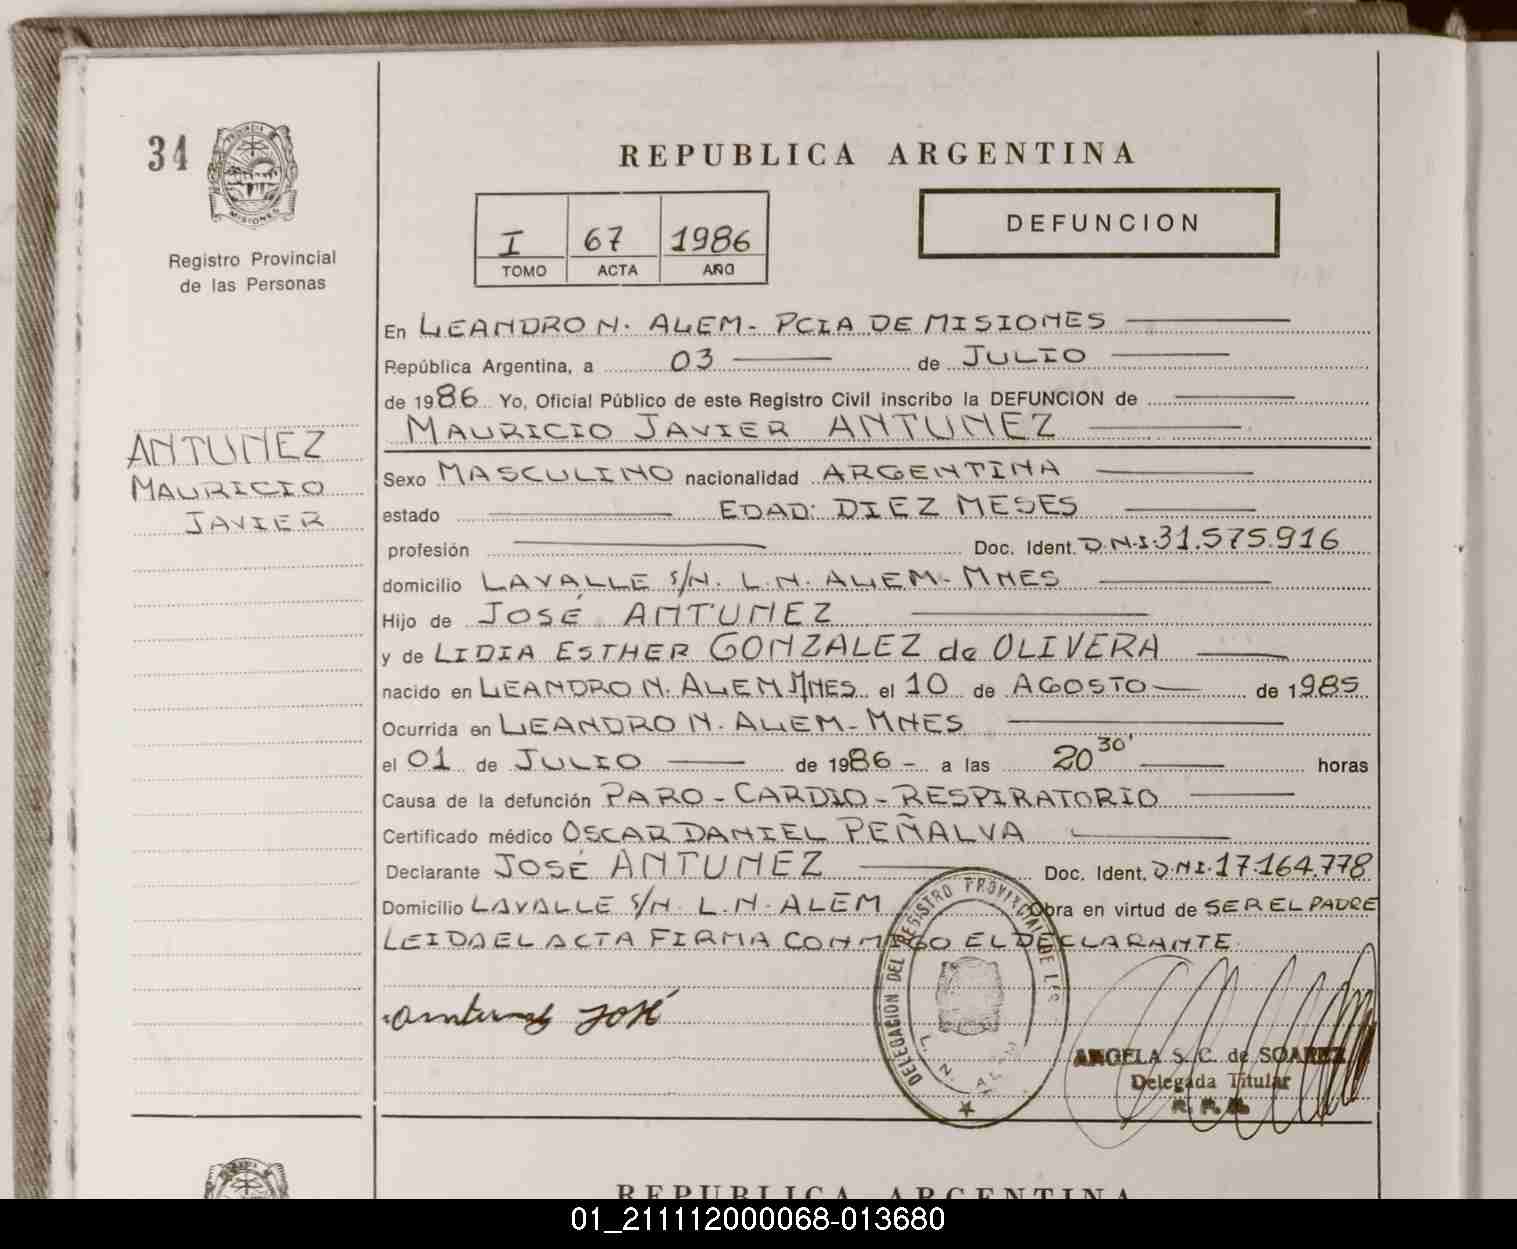 34
PROVINCIA DE
MISIONES
Registro Provincial
de las Personas
REPUBLICA ARGENTINA
I 67 1986
TOMO ACTA AÑO
DEFUNCION
En LEANDRO N. ALEM - PCIA DE MISIONES
República Argentina, a 03 de JULIO
de 1986 Yo, Oficial Público de este Registro Civil inscribo la DEFUNCION de
MAURICIO JAVIER ANTUNEZ
ANTUNEZ
MAURICIO
JAVIER
Sexo MASCULINO nacionalidad ARGENTINA
estado EDAD: DIEZ MESES
profesión Doc. Ident. D.N.I. 31.575.916
domicilio LAVALLE S/N. L.N. ALEM - MNES
Hijo de JOSÉ ANTUNEZ
y de LIDIA ESTHER GONZALEZ de OLIVERA
nacido en LEANDRO N. ALEM MNES el 10 de AGOSTO de 1985
Ocurrida en LEANDRO N. ALEM - MNES
el 01 de JULIO de 1986 - a las 20 30' horas
Causa de la defunción PARO - CARDIO - RESPIRATORIO
Certificado médico OSCAR DANIEL PEÑALVA
Declarante JOSÉ ANTUNEZ Doc. Ident. D.N.I. 17.164.778
Domicilio LAVALLE S/N. L.N. ALEM Obra en virtud de SER EL PADRE
LEIDA EL ACTA FIRMA CONMIGO EL DECLARANTE.
Antunez José
DELEGACION DEL REGISTRO PROVINCIAL DE LAS
L. N. ALEM
ANGELA S. C. de SOAREZ
Delegada Titular
REPUBLICA ARGENTINA
01_211112000068-013680